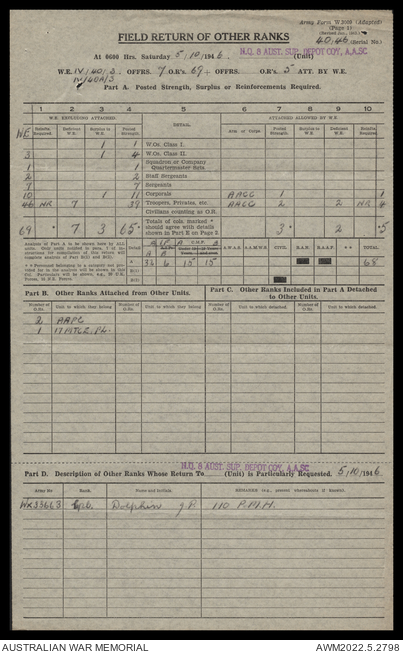 Army Form W.3009 (Adapted)
(Page 1)
40.46 (Serial No.)
FIELD RETURN OF OTHER RANKS
At 0600 Hrs. Saturday 5/10/1946. H.Q. 8 AUST. SUP. DEPOT COY. A.A.SC. (Unit)
W.E. IV/40/3 OFFRS. 7 O.R's. 69 + OFFRS. O.R's. 5 ATT. BY W.E.
IV/40A/3
Part A. Posted Strength, Surplus or Reinforcements Required.
1 2 3 4 5 6 7 8 9 10
W.E. EXCLUDING ATTACHED DETAIL ATTACHED ALLOWED BY W.E.
WE Reinfts. Required Deficient W.E. Surplus to W.E. Posted Strength Arm or Corps Posted Strength Surplus to W.E. Deficient W.E. Reinfts. Required
1 1 W.Os. Class I.
3 1 4 W.Os. Class II.
1 1 Squadron or Company Quartermaster Sgts.
2 2 Staff Sergeants
7 7 Sergeants
10 1 11 Corporals AACC 1
46 NR 7 39 Troopers, Privates, etc. AACC 2 2 NR 4
Civilians counting as O.R.
69 * 7 3 65 * Totals of cols. marked * should agree with details shown in Part E on Page 2 3 * 2 * 5
A.W.A.S. A.A.M.W.S. CIVIL R.A.N. R.A.A.F. * * TOTAL
34 6 15 15 68
Part B. Other Ranks Attached from Other Units. Part C. Other Ranks Included in Part A Detached to Other Units.
Number of O.Rs. Unit to which they belong Number of O.Rs. Unit to which they belong Number of O.Rs. Unit to which detached. Number of O.Rs. Unit to which detached.
2 AAPC
Part D. Description of Other Ranks Whose Return To H.Q. 8 AUST. SUP. DEPOT COY. A.A.SC. (Unit) is Particularly Requested. 5/10/1946.
Army No. Rank. Name and Initials. REMARKS (e.g., present whereabouts if known).
WX33663 Cpl. Dolphin J.P. 110 P.M.H.
AUSTRALIAN WAR MEMORIAL AWM2022.5.2798